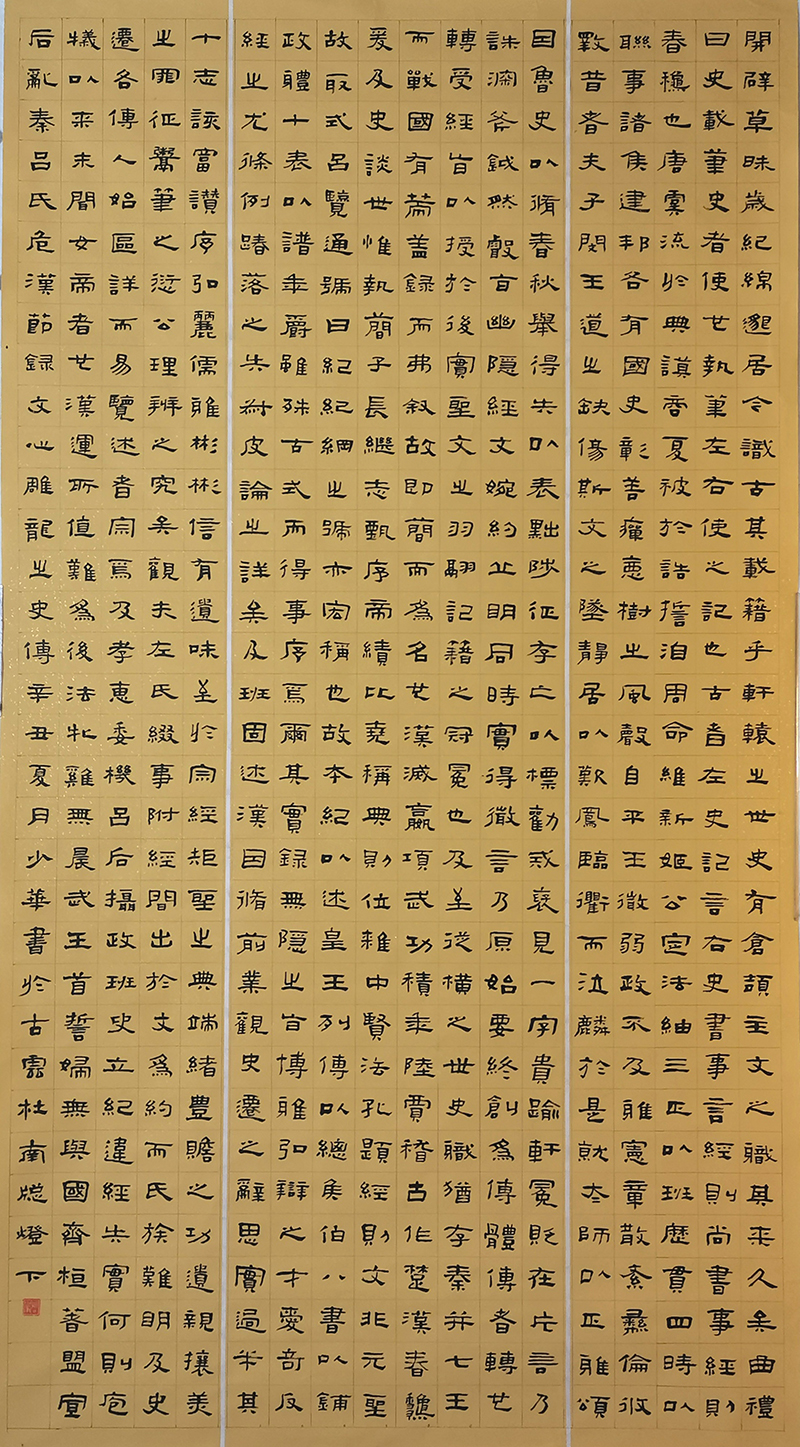 開辟草昧歲紀綿邈居今識古其載籍乎軒轅之世史有倉頡主文之職其來久矣曲禮
曰史載筆史者使也執筆左右使之記也古者左史記言右史書事言經則尚書事經則
春穐也唐虞流於典謨商夏被於誥誓洎周命維新姬公定法紬三正以班歷貫四時以
聯事諸侯建邦各有國史彰善癉惡樹之風聲自平王微弱政不及雅憲章散紊彝倫攸
斁昔者夫子閔王道之缺傷斯文之墜靜居以歎鳳臨衢而泣麟於是就太師以正雅頌
因魯史以脩春秋舉得失以表黜陟征存亡以標勸戒褒見一字貴踰軒冕貶在片言乃
誅深斧鉞然睿旨幽隱經文婉約丘明同時實得微言乃原始要終創為傳體傳者轉也
轉受經旨以授於後實聖文之羽翮記籍之冠冕也及至從橫之世史職猶存秦并七王
而戰國有策蓋錄而弗敘故即簡而為名也漢滅嬴項武功積年陸賈稽古作楚漢春穐
爰及史談世惟執簡子長繼志甄序帝績比堯稱典則位雜中賢法孔題經則文非元聖
故取式呂覽通號曰紀紀綱之號亦宏稱也故本紀以述皇王列傳以總侯伯八書以鋪
政體十表以譜年爵雖殊古式而得事序焉爾其實錄無隱之旨博雅弘辯之才愛奇反
經之尤條例踳落之失叔皮論之詳矣及班固述漢因循前業觀史遷之辭思實過半其
十志該富讚序弘麗儒雅彬彬信有遺味至於宗經矩聖之典端緒豐贍之功遺親攘美
之罪征鬻筆之愆公理辨之究矣觀夫左氏綴事附經間出於文為約而氏族難明及史
遷各傳人始區詳而易覽述者宗焉及孝惠委機呂后攝政班史立紀違經失實何則庖
犧以來未聞女帝者也漢運所值難為後法牝雞無晨武王首誓婦無與國齊桓著盟宣
后亂秦呂氏危漢節錄文心雕龍之史傳辛丑夏月少華書於古杜南牕燈下